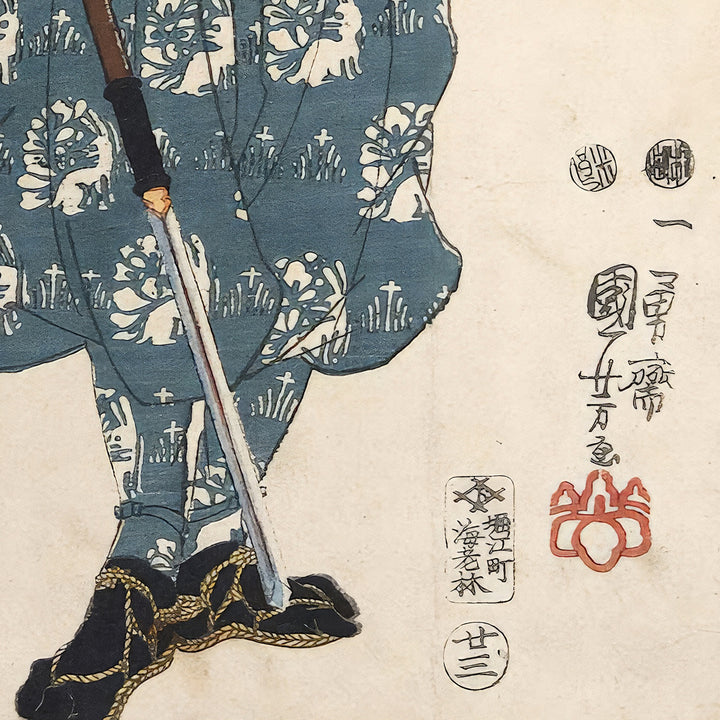 一
一勇齋
國芳画
堀江町
海老林
廿三